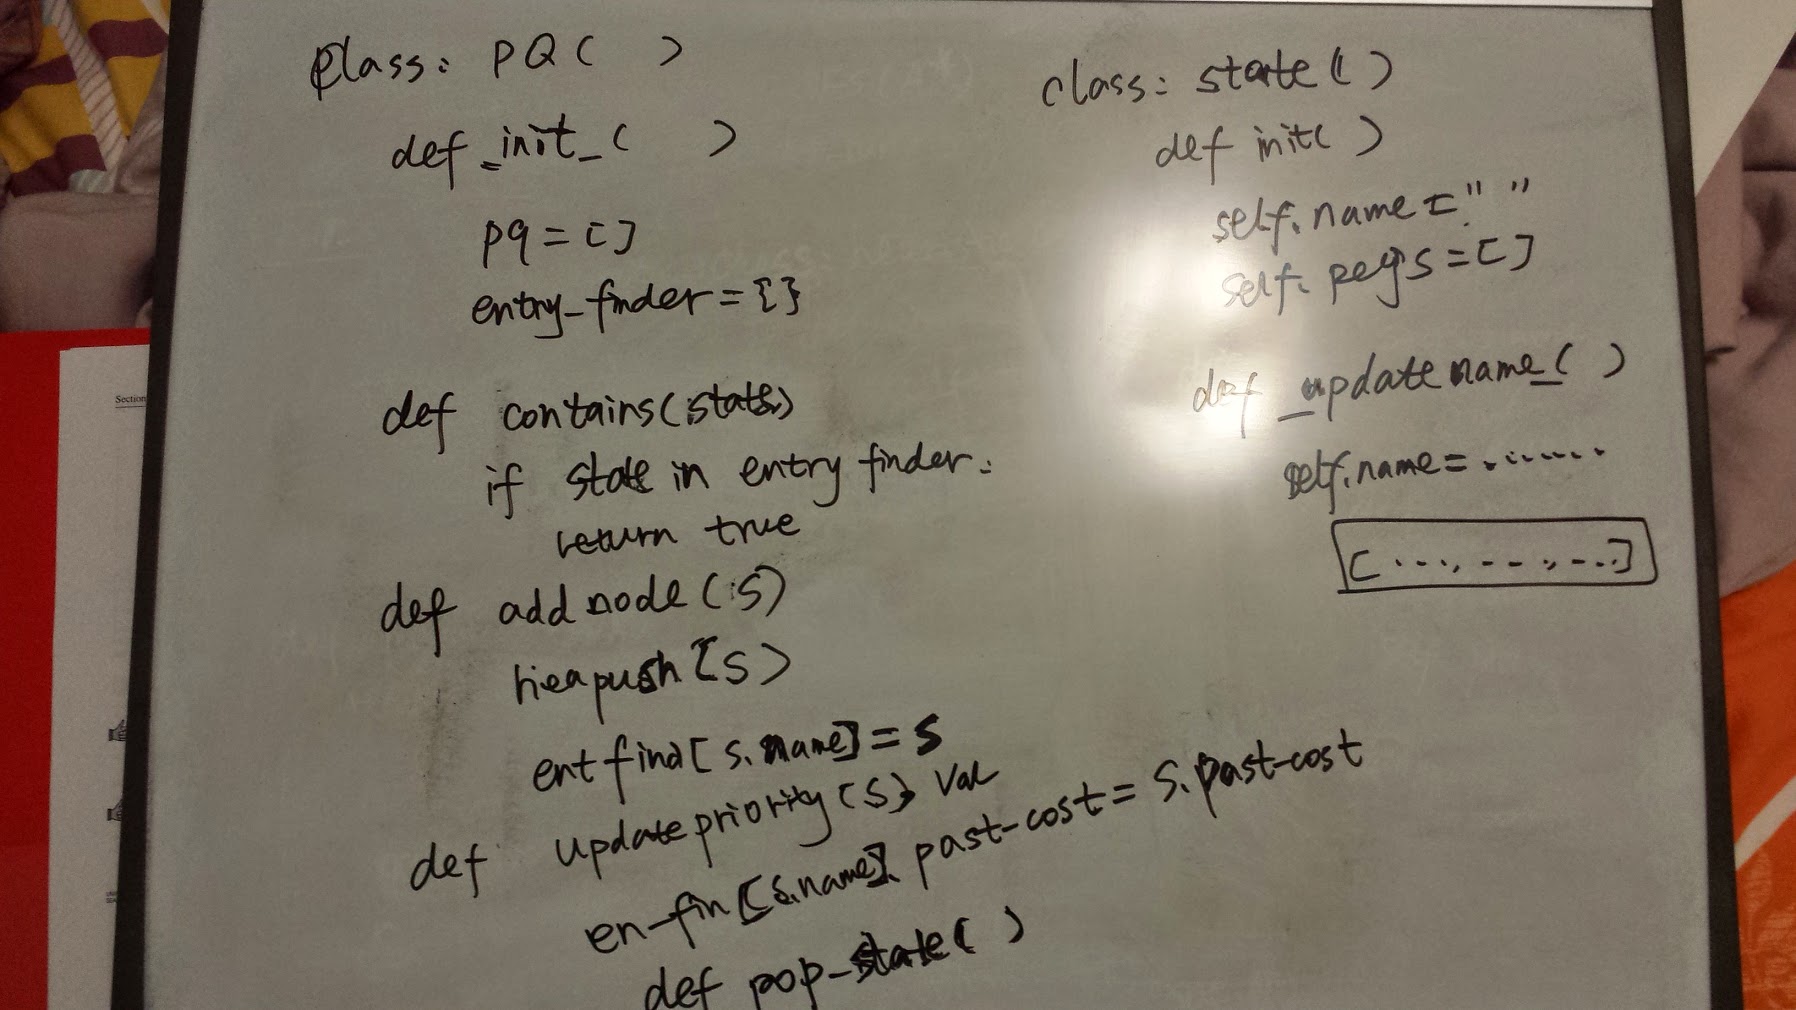 class: PQ( )
def _init_( )
pq = []
entry_finder = {}
def contains(state)
if state in entry finder:
return true
def add node (s)
heapush[s)
entfind[s.name] = s
def updatepriority(s) val
en-fin[s.name]. past-cost = s.past-cost
def pop-state( )
class: state( )
def init( )
self.name = " "
self.pegs = []
def _update name_( )
self.name = .......
[ ...., --- , --..]
Section